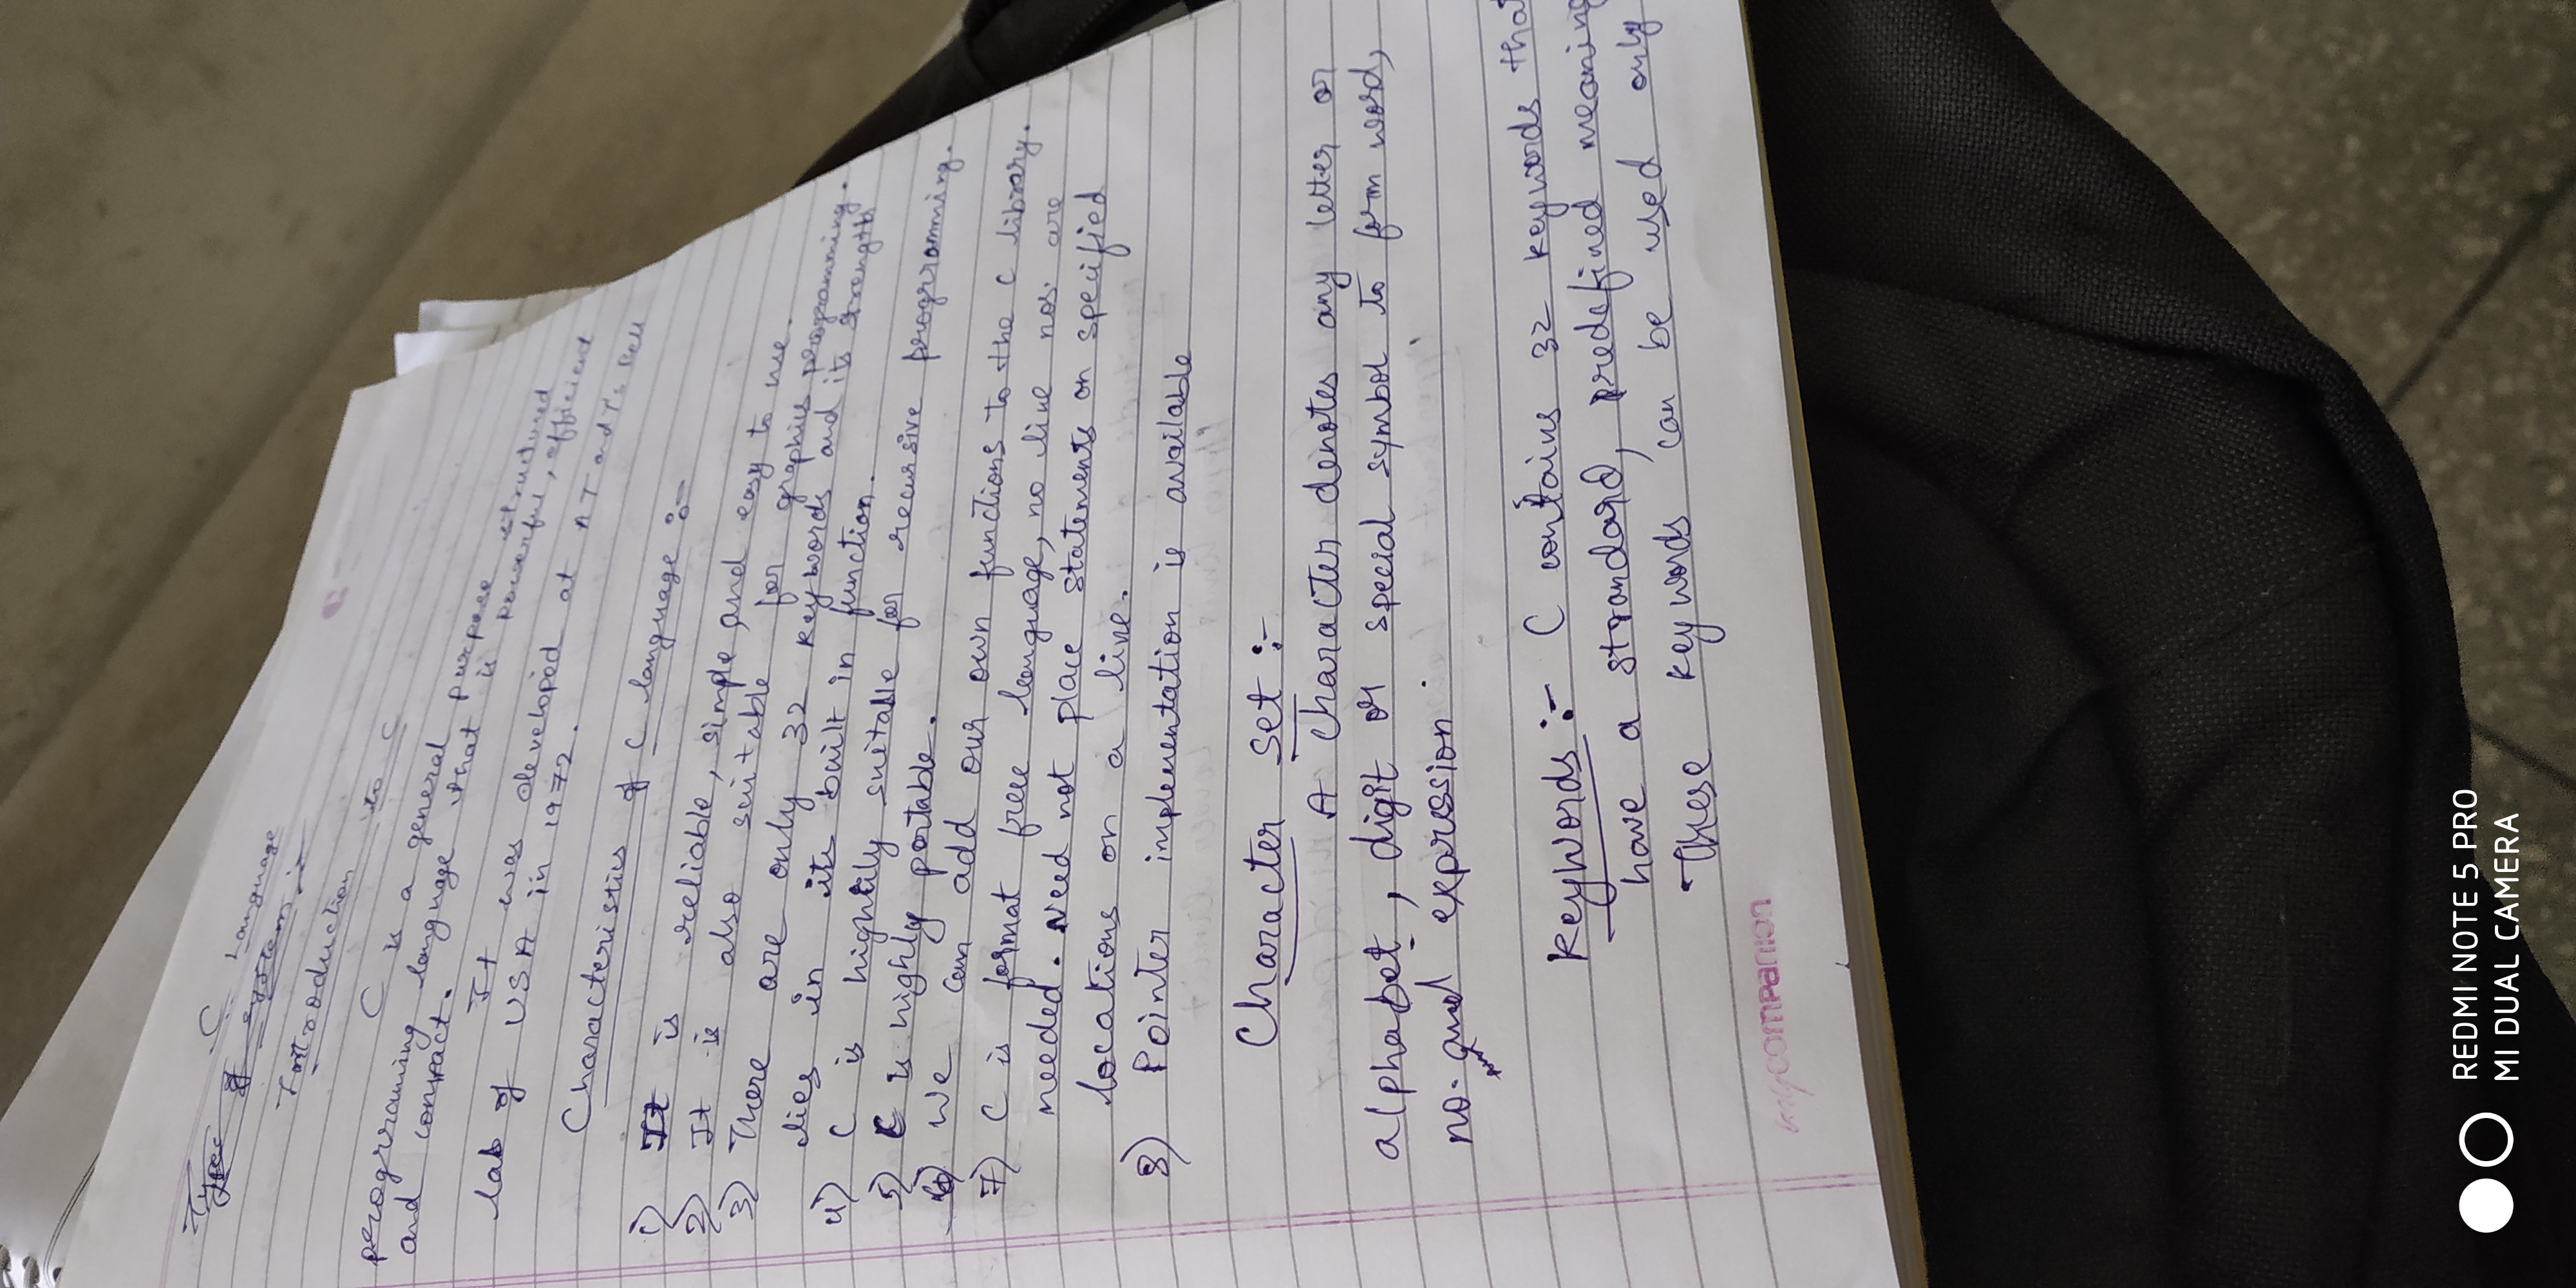 C Language
Types of system :-
Introduction to C
C is a general purpose structured
perogrraming language that is powerful, efficient
and compact.
It was developed at AT and T's Bell
lab of USA in 1972.
Characteristics of C language :-
1) It is reliable, simple and easy to use.
2) It is also suitable for graphics perogramming.
3) There are only 32 keywords and its strength
lies in its built in function.
4) C is highly suitable for recursive progrramming.
5) C is highly portable.
6) We can add our own functions to the C library.
7) C is format free language, no line nos. are
needed. Need not place statements on specified
locations on a line.
8) Pointer implementation is available
Character set :-
A Character denotes any letter or
alphabet, digit or special symbol to form word,
no. and expression
Keywords :- C contains 32 keywords that
have a standard, predefined meaning
These keywords can be used only
mycompanion
REDMI NOTE 5 PRO
MI DUAL CAMERA